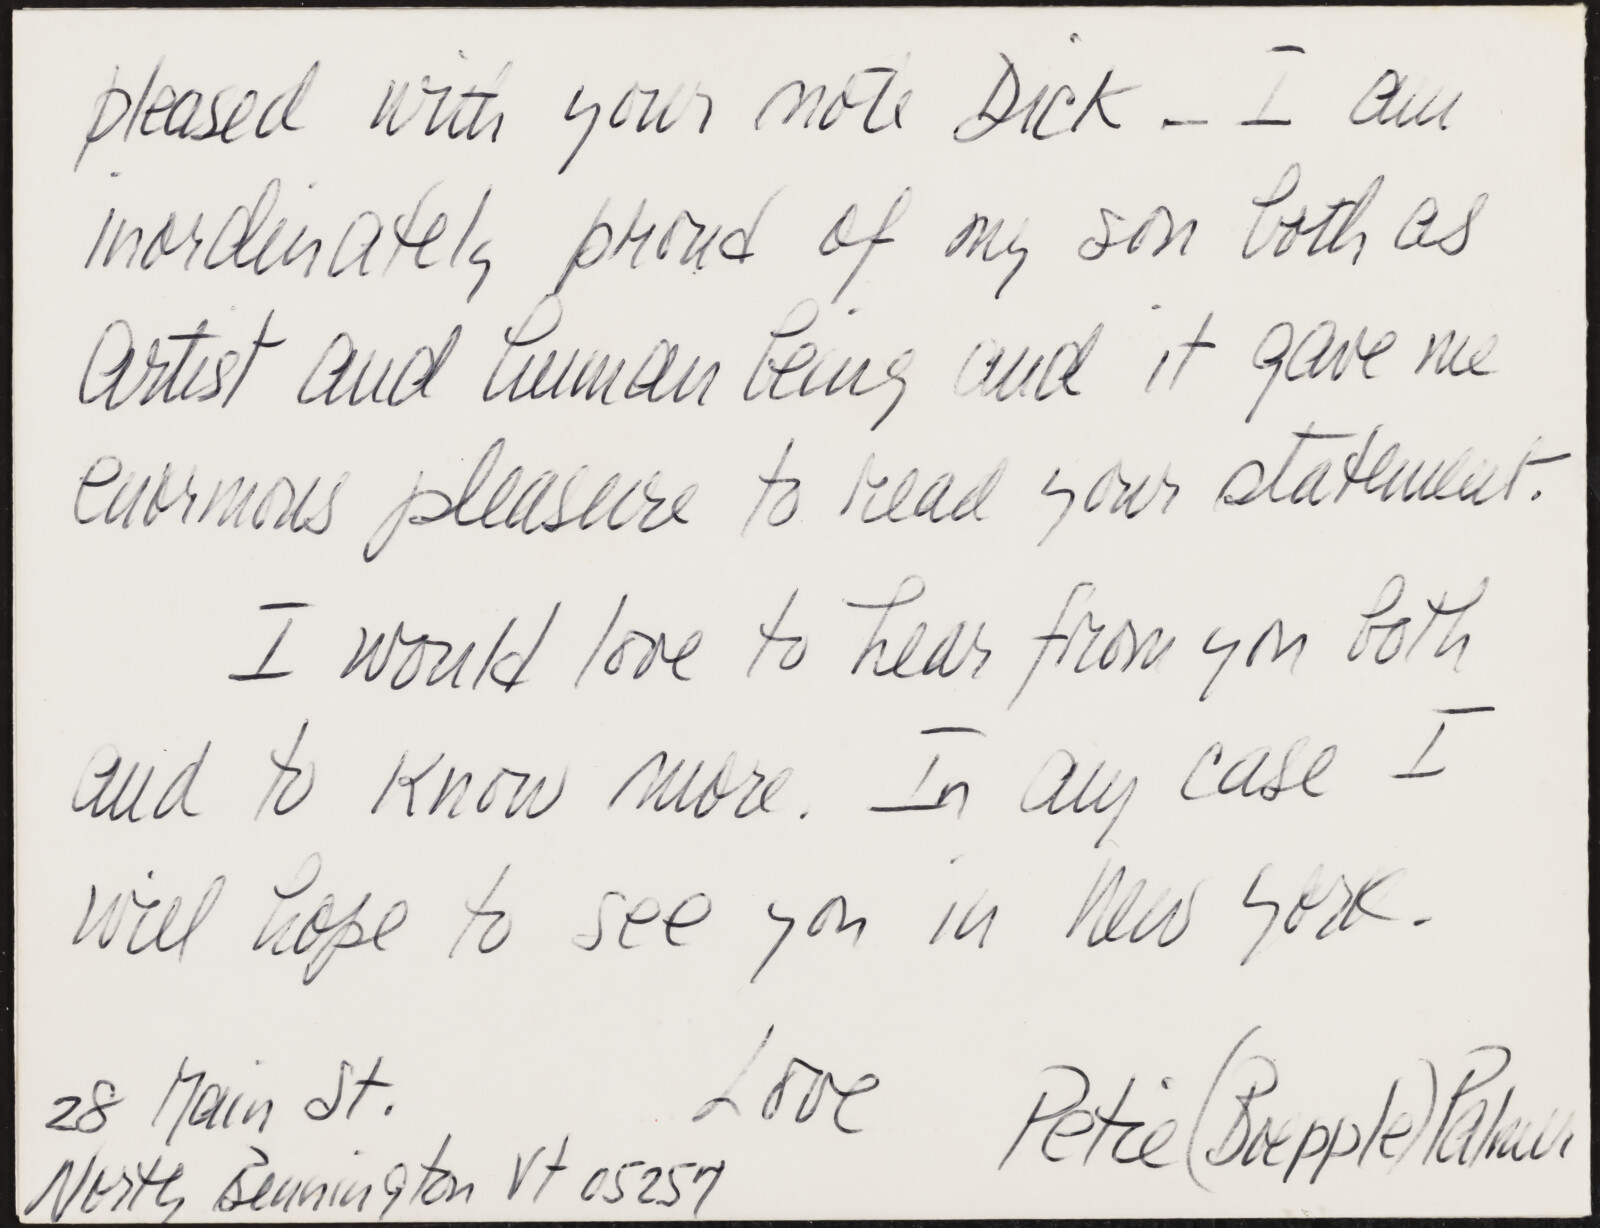 pleased with your note Dick - I am
inordinately proud of my son both as
artist and human being and it gave me
enormous pleasure to read your statement.
I would love to hear from you both
and to know more. In any case I
will hope to see you in New York.
Love
Petie (Boepple) Palmer
28 Main St.
North Bennington Vt 05257